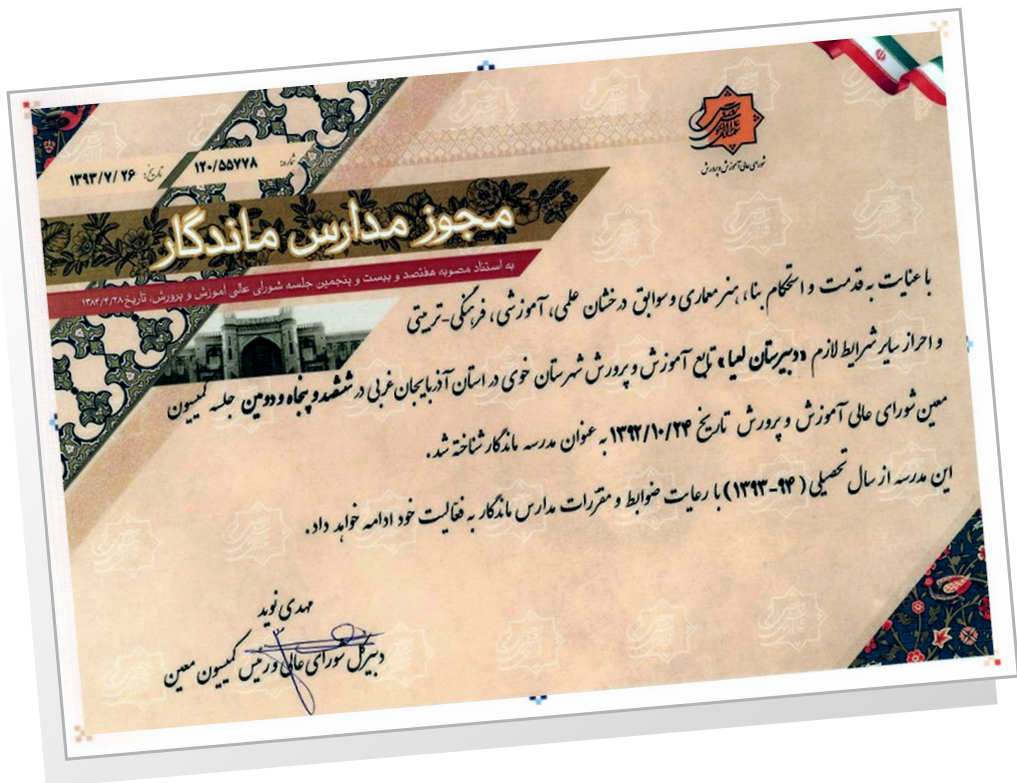 شورای عالی آموزش و پرورش
شماره: ۱۲۰/۵۵۷۷۸
تاریخ: ۱۳۹۳/۷/۲۶
مجوز مدارس ماندگار
به استناد مصوبه هفتصد و بیست و پنجمین جلسه شورای عالی آموزش و پرورش، تاریخ ۱۳۸۴/۴/۲۸
با عنایت به قدمت و استحکام بنا، هنر معماری و سوابق درخشان علمی، آموزشی، فرهنگی-تربیتی
و احراز سایر شرایط لازم «دبیرستان لعیا» تابع آموزش و پرورش شهرستان خوی در استان آذربایجان غربی در ششصد و پنجاه و دومین جلسه کمیسیون
معین شورای عالی آموزش و پرورش تاریخ ۱۳۹۲/۱۰/۲۴ به عنوان مدرسه ماندگار شناخته شد.
این مدرسه از سال تحصیلی (۹۴-۱۳۹۳) با رعایت ضوابط و مقررات مدارس ماندگار به فعالیت خود ادامه خواهد داد.
مهدی نوید
دبیرکل شورای عالی و رئیس کمیسیون معین